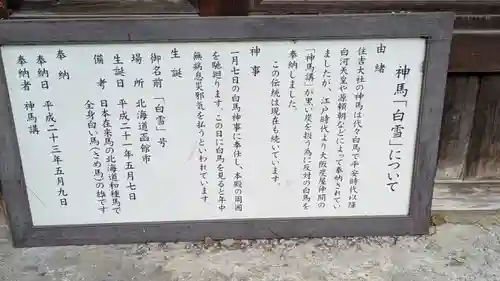 神馬「白雪」について
由緒
住吉大社の神馬は代々白馬で平安時代以降
白河天皇や源頼朝などによって奉納されてい
ましたが、江戸時代より大阪度屋仲間の
「神馬講」が黒い炭を扱う為に反対の白馬を
奉納しました。
この伝統は現在も続いています。
神事
一月七日の白馬神事に奉仕し、本殿の周囲
を馳廻ります。この日に白馬を見ると年中
無病息災邪気を払うといわれています
生誕
御名前 「白雪」号
場所 北海道函館市
生誕日 平成二十一年五月七日
備考 日本在来馬の北海道和種馬で
全身白い馬(さめ馬)の雄です
奉納
奉納日 平成二十三年五月九日
奉納者 神馬講